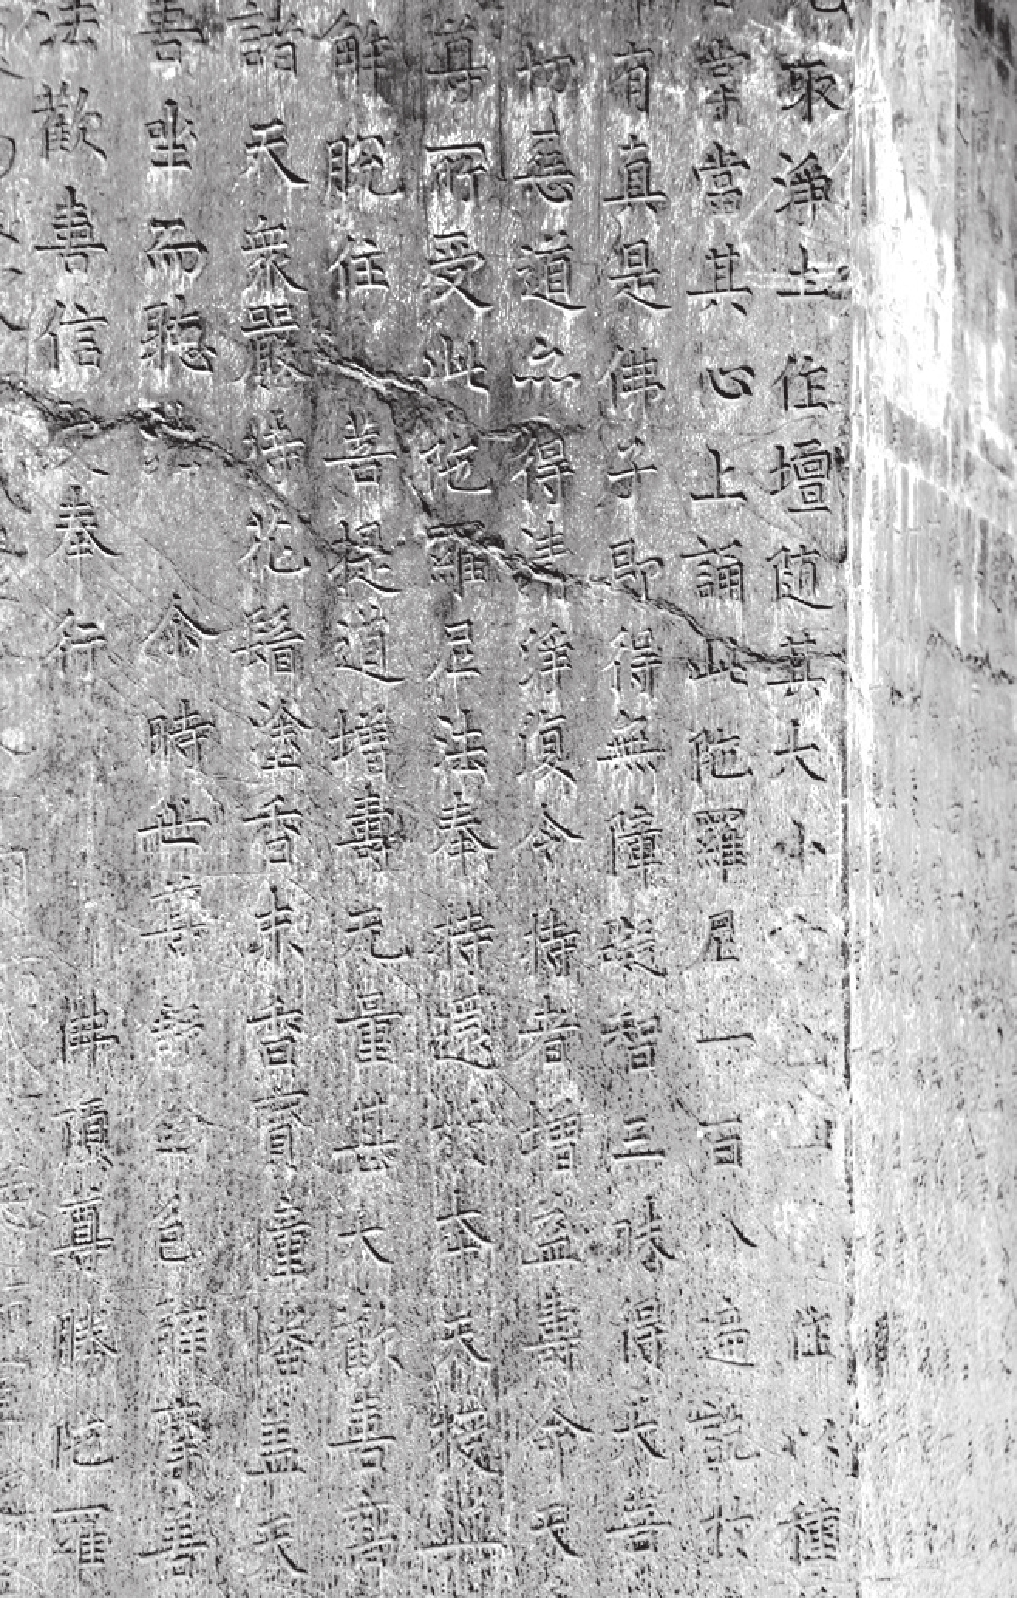 取淨土作壇隨其大小作以種
掌當其心上誦此陁羅尼一百八遍訖於
有真是佛子即得無障礙智三昧得大菩
切惡道亦得清淨復令持者增益壽命天
尊所受此陁羅尼法奉持還於本天授與
解脫住菩提道增壽无量甚大歡喜高
諸天衆嚴持花鬘塗香末香寶幢幡蓋天
吾坐而聽法尒時世尊色摩善
法歡喜信奉行佛頂尊勝陁羅